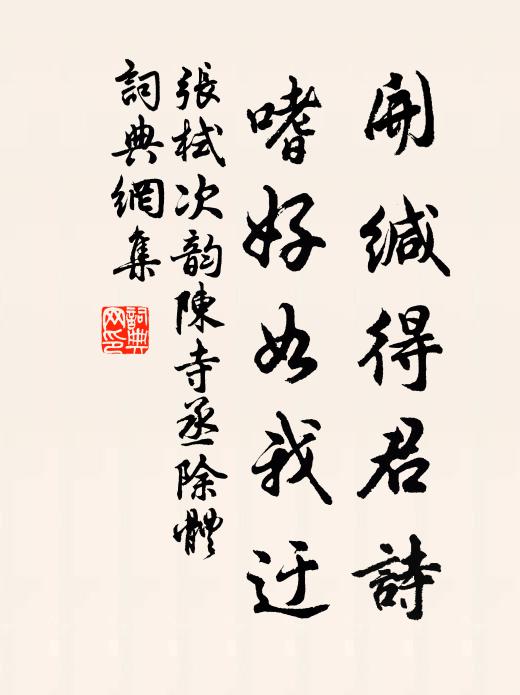 開緘得君詩
嗜好如我迂
張栻次韵陳寺丞除體
詞典網集
詞典网印